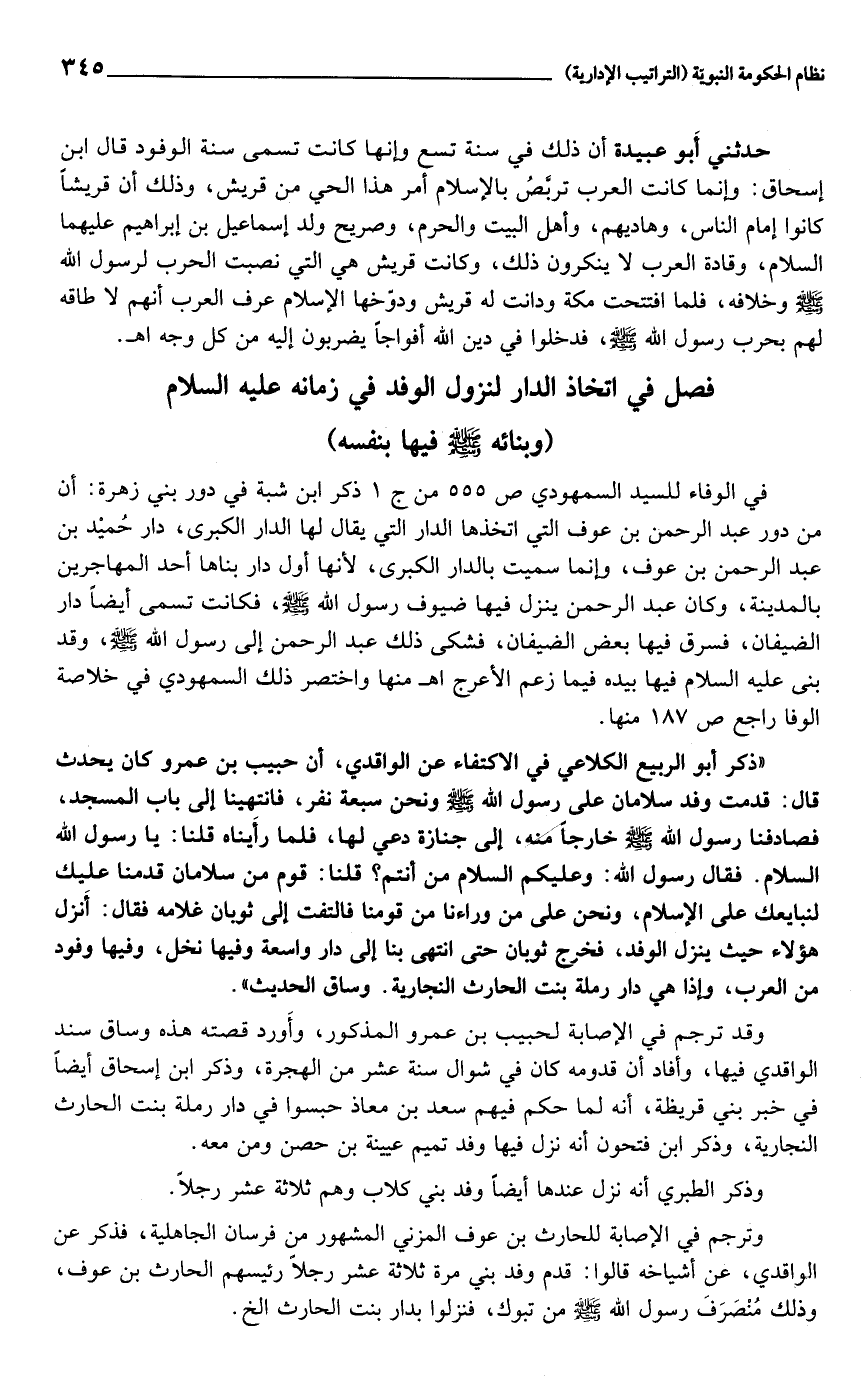 نظام الحكومة النبويّة (التراتيب الإدارية) ٣٤٥
حدثني أَبو عبيدة أن ذلك في سنة تسع وإنها كانت تسمى سنة الوفود قال ابن
إسحاق: وإنما كانت العرب تربَّصُ بالإسلام أمر هذا الحي من قريش، وذلك أن قريشاً
كانوا إمام الناس، وهاديهم، وأهل البيت والحرم، وصريح ولد إسماعيل بن إبراهيم عليهما
السلام، وقادة العرب لا ينكرون ذلك، وكانت قريش هي التي نصبت الحرب لرسول الله
ﷺ وخلافه، فلما افتتحت مكة ودانت له قريش ودوّخها الإسلام عرف العرب أنهم لا طاقه
لهم بحرب رسول الله ﷺ، فدخلوا في دين الله أفواجاً يضربون إليه من كل وجه اهـ.
فصل في اتخاذ الدار لنزول الوفد في زمانه عليه السلام
(وبنائه ﷺ فيها بنفسه)
في الوفاء للسيد السمهودي ص ٥٥٥ من ج ١ ذكر ابن شبة في دور بني زهرة: أن
من دور عبد الرحمن بن عوف التي اتخذها الدار التي يقال لها الدار الكبرى، دار حُميْد بن
عبد الرحمن بن عوف، وإنما سميت بالدار الكبرى، لأنها أول دار بناها أحد المهاجرين
بالمدينة، وكان عبد الرحمن ينزل فيها ضيوف رسول الله ﷺ، فكانت تسمى أيضاً دار
الضيفان، فسرق فيها بعض الضيفان، فشكى ذلك عبد الرحمن إلى رسول الله ﷺ، وقد
بنى عليه السلام فيها بيده فيما زعم الأعرج اهـ منها واختصر ذلك السمهودي في خلاصة
الوفا راجع ص ١٨٧ منها.
«ذكر أبو الربيع الكلاعي في الاكتفاء عن الواقدي، أن حبيب بن عمرو كان يحدث
قال: قدمت وفد سلامان على رسول الله ﷺ ونحن سبعة نفر، فانتهينا إلى باب المسجد،
فصادفنا رسول الله ﷺ خارجاً منه، إلى جنازة دعي لها، فلما رأَيناه قلنا: يا رسول الله
السلام. فقال رسول الله: وعليكم السلام من أنتم؟ قلنا: قوم من سلامان قدمنا عليك
لنبايعك على الإسلام، ونحن على من وراءنا من قومنا فالتفت إلى ثوبان غلامه فقال: أَنزل
هؤلاء حيث ينزل الوفد، فخرج ثوبان حتى انتهى بنا إلى دار واسعة وفيها نخل، وفيها وفود
من العرب، وإذا هي دار رملة بنت الحارث النجارية. وساق الحديث».
وقد ترجم في الإصابة لحبيب بن عمرو المذكور، وأَورد قصته هذه وساق سند
الواقدي فيها، وأفاد أن قدومه كان في شوال سنة عشر من الهجرة، وذكر ابن إسحاق أيضاً
في خبر بني قريظة، أنه لما حكم فيهم سعد بن معاذ حبسوا في دار رملة بنت الحارث
النجارية، وذكر ابن فتحون أنه نزل فيها وفد تميم عيينة بن حصن ومن معه.
وذكر الطبري أنه نزل عندها أيضاً وفد بني كلاب وهم ثلاثة عشر رجلاً.
وترجم في الإصابة للحارث بن عوف المزني المشهور من فرسان الجاهلية، فذكر عن
الواقدي، عن أشياخه قالوا: قدم وفد بني مرة ثلاثة عشر رجلاً رئيسهم الحارث بن عوف،
وذلك مُنْصَرَفَ رسول الله ﷺ من تبوك، فنزلوا بدار بنت الحارث الخ.